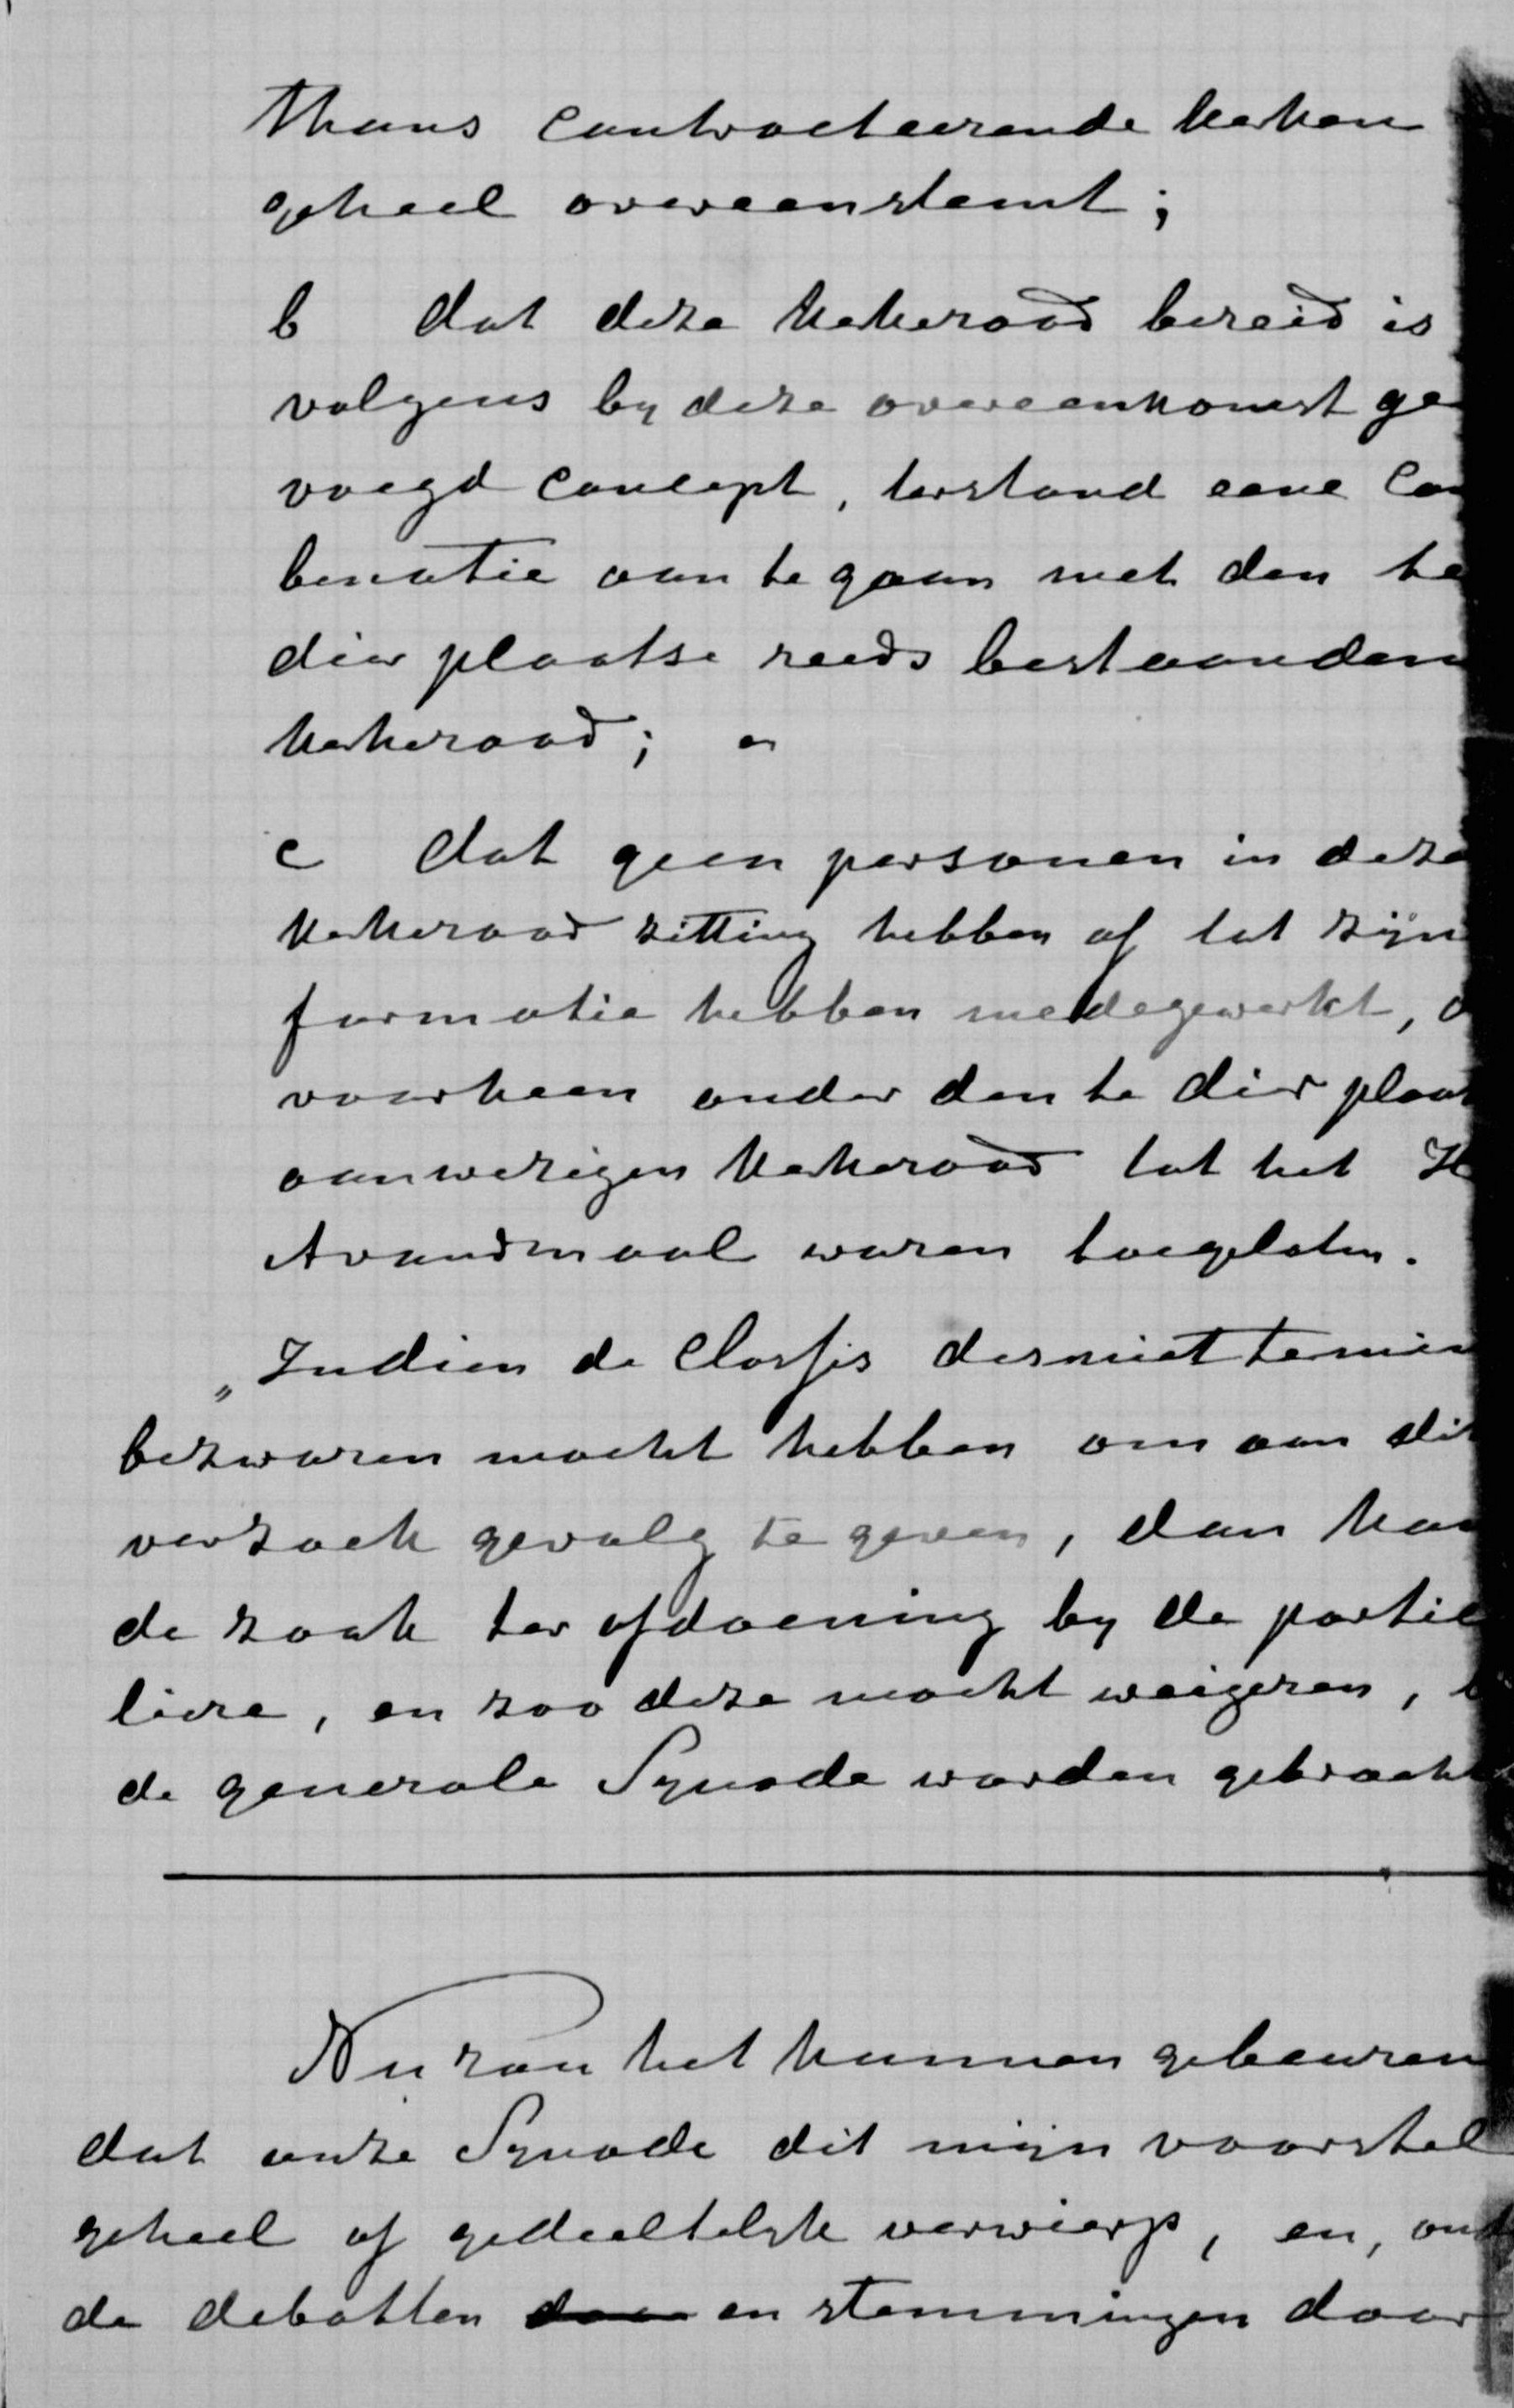 thans contracteerende kerken
geheel overeenstemt;
b dat deze kerkeraad bereid is
volgens by deze overeenkomst ge
voegd concept, terstond eene Com
benatie aan te gaan met den te
dier plaatse reeds bestaanden
kerkeraad; en
c dat geen personen in deze
kerkeraad zitting hebben of tot zijn
formatie hebben medegewerkt, d
voorheen onder den te dier plaat
aanwezigen kerkeraad tot het H
Avondmaal waren toegelaten.
„Indien de Classis desniettemin
bezwaren mocht hebben om aan dit
verzoek gevolg te geven, dan kan
de zaak ter afdoening by de partic
liere, en zoo deze mocht weigeren, b
de generale Synode worden gebracht
Nu zou het kunnen gebeuren
dat onze Synode dit mijn voorstel
geheel of gedeeltelijk verwierp, en, ond
de debatten en stemmingen door